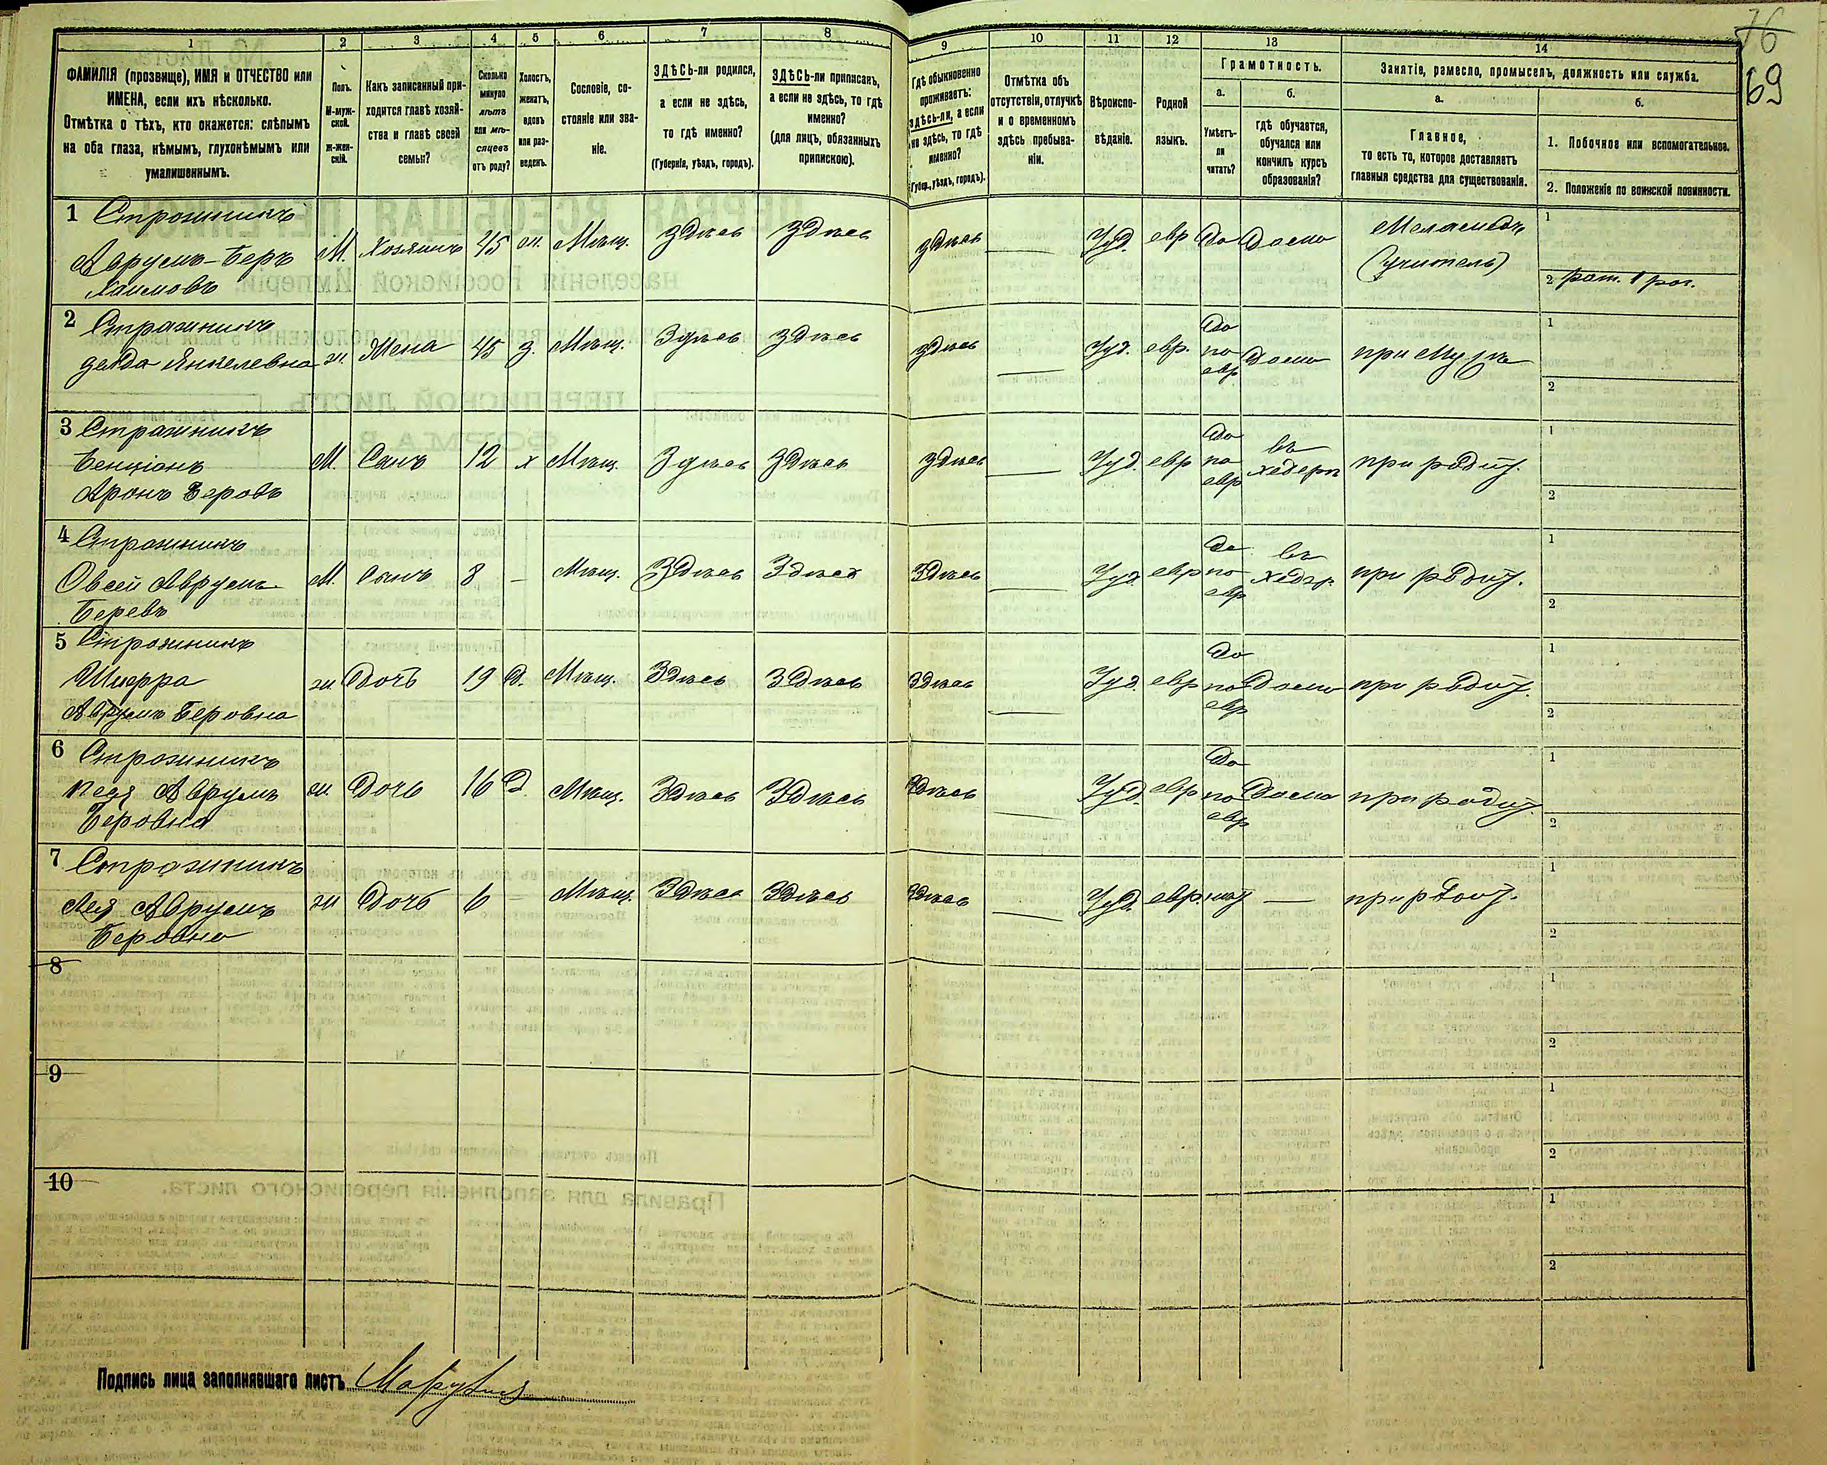 76
69
1 2 3 4 5 6 7 8 9 10 11 12 13 14
ФАМИЛІЯ (прозвище), ИМЯ и ОТЧЕСТВО или
ИМЕНА, если ихъ нѣсколько.
Отмѣтка о тѣхъ, кто окажется: слѣпымъ
на оба глаза, нѣмымъ, глухонѣмымъ или
умалишеннымъ.
Полъ.
М-муж-
ской.
ж-жен-
скій.
Какъ записанный при-
ходится главѣ хозяй-
ства и главѣ своей
семьи?
Сколько
минуло
лѣтъ
или мѣ-
сяцевъ
отъ роду?
Холостъ,
женатъ,
вдовъ
или раз-
веденъ.
Сословіе, со-
стояніе или зва-
ніе.
ЗДѢСЬ-ли родился,
а если не здѣсь,
то гдѣ именно?
(Губернія, уѣздъ, городъ).
ЗДѢСЬ-ли приписанъ,
а если не здѣсь, то гдѣ
именно?
(для лицъ, обязанныхъ
припискою).
Гдѣ обыкновенно
проживаетъ:
здѣсь-ли, а если
не здѣсь, то гдѣ
именно?
(Губер., уѣздъ, городъ).
Отмѣтка объ
отсутствіи, отлучкѣ
и о временномъ
здѣсь пребыва-
ніи.
Вѣроиспо-
вѣданіе.
Родной
языкъ.
Грамотность.
а.
Умѣетъ-
ли
читать?
б.
гдѣ обучается,
обучался или
кончилъ курсъ
образованія?
Занятіе, ремесло, промыселъ, должность или служба.
а.
Главное,
то есть то, которое доставляетъ
главныя средства для существованія.
б.
1. Побочное или вспомогательное.
2. Положеніе по воинской повинности.
1 Стражникъ
Аврумъ-Беръ
Хаимовъ
М. Хозяинъ 45 ж. Мѣщ. Здѣсь Здѣсь Здѣсь — Іуд. евр Да Дома
Меламедъ
(учитель)
1
2 рат. 1 раз.
2 Стражникъ
Янкелевна
ж. Жена 45 з. Мѣщ. Здѣсь Здѣсь Здѣсь — Іуд. евр. Да по евр Дома при мужѣ
1
2
3 Стражникъ
Бенціонъ
Аронъ Беровъ
М. Сынъ 12 х Мѣщ. Здѣсь Здѣсь Здѣсь — Іуд. евр Да по евр въ хедерѣ при родит.
1
2
4 Стражникъ
Овсей Аврумъ
Беревъ
М. Сынъ 8 — Мѣщ. Здѣсь Здѣсь Здѣсь — Іуд. евр Да по евр въ хедер. при родит.
1
2
5 Стражникъ
Аврумъ Беровна
ж. Дочь 19 д. Мѣщ. Здѣсь Здѣсь Здѣсь — Іуд. евр Да по евр Дома при родит.
1
2
6 Стражникъ
Песя Аврумъ
Беровна
ж. Дочь 16 д Мѣщ. Здѣсь Здѣсь Здѣсь — Іуд. евр Да по евр Дома при родит.
1
2
7 Стражникъ
Лея Аврумъ
Беровна
ж Дочь 6 — Мѣщ. Здѣсь Здѣсь Здѣсь — Іуд. евр. нѣт — при родит.
1
2
8
1
2
9
1
2
10
1
2
Подпись лица заполнявшаго листъ